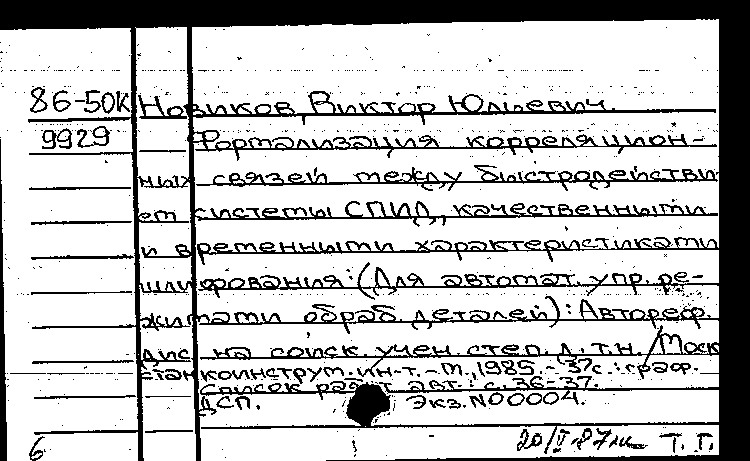 86-50К Новиков, Виктор Юльевич.
9929 Формализация корреляцион-
ных связей между быстродействи
ем системы СПИД, качественными
и временными характеристиками
шлифования: (Для автомат. упр. ре-
жимами обраб. деталей): Автореф.
дис. на соиск. учен. степ. д.т.н. / Моск
станкоинструм. ин-т. - М., 1985. - 37с.: граф.
Список работ авт.: с. 36-37.
ДСП. Экз. N00004.
6 20/I-87 Т. Г.